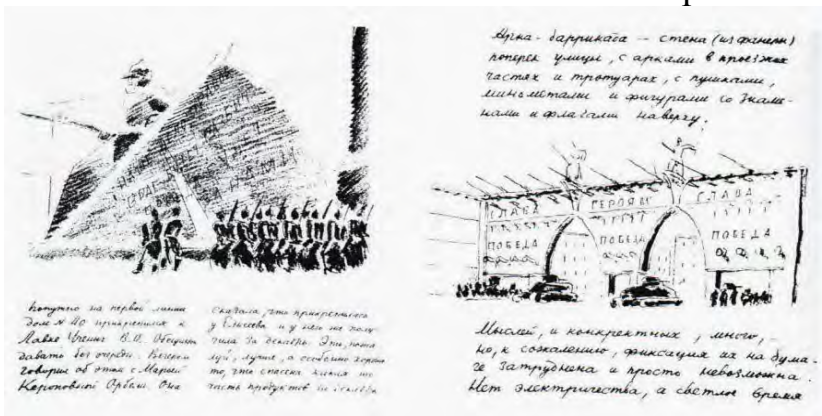 НАМИ
Попутно на первой линии
дом № 40 прикрепился к
Лавке Ученых В.О. Обещали
давать без очереди. Вечером
говорил об этом с Марией
Карповной Орбели. Она
сказала, что прикрепилась
у Елисеева и у него не полу-
чила за декабрь. Эти, пожа-
луй, лучше, а особенно хорошо
то, что спасена какая то
часть продуктов за декабрь
Арка-баррикада — стена (из фанеры)
поперек улицы, с арками в проезжих
частях и тротуарах, с пушками,
минометами и фигурами со знаме-
нами и флагами наверху.
СЛАВА ГЕРОЯМ СЛАВА
ПОБЕДА ПОБЕДА ПОБЕДА
Мыслей, и конкретных, много,
но, к сожалению, фиксация их на бума-
ге затруднена и просто невозможна.
Нет электричества, а светлое время